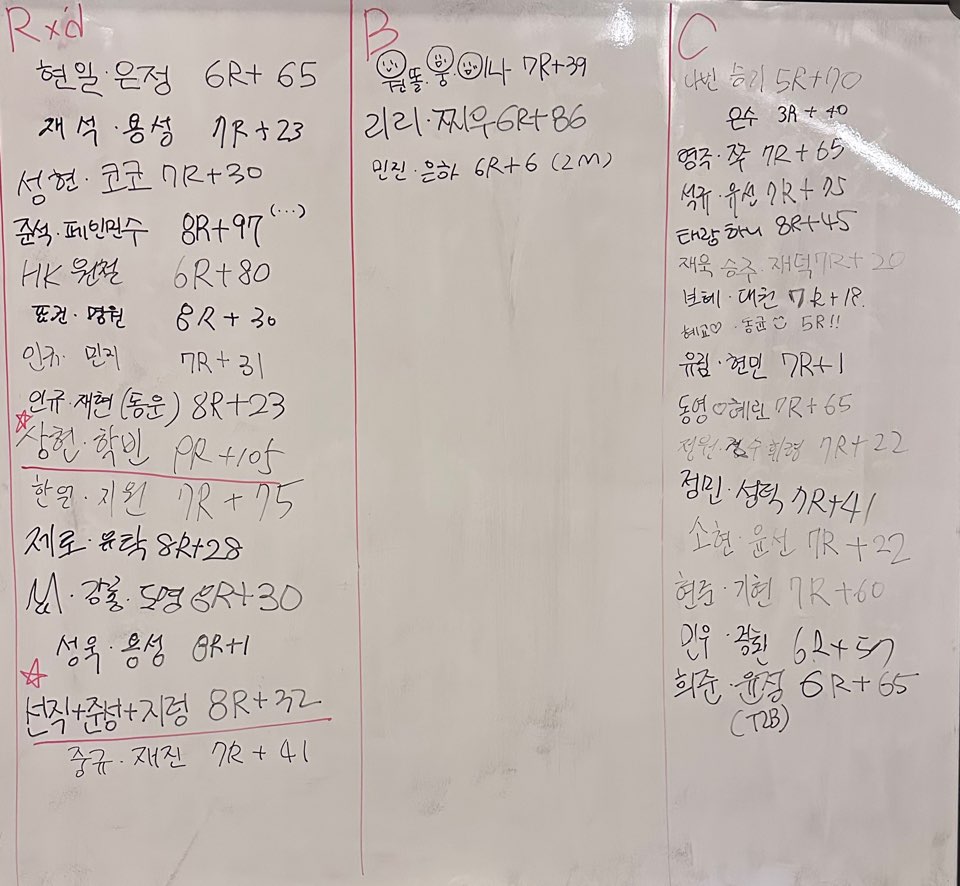 Rxd
현일·은정 6R+65
재석·용성 7R+23
성현·코코 7R+30
준석·페인민수 8R+97(...)
HK 원철 6R+80
표건·명원 8R+30
인규·민지 7R+31
인규·재현(동운) 8R+23
상현·학빈 9R+105
한일·지원 7R+75
제로·윤탁 8R+28
·강홍·도명 8R+30
성욱·용성 8R+1
선직+준성+지령 8R+32
중규·재진 7R+41
B
똘·뭉·미나 7R+39
리리·찌우 6R+86
민진·은하 6R+6 (2M)
C
나빈 승기 5R+70
은수 3R+40
영주·쭈 7R+65
석규·유선 7R+75
태랑 하니 8R+45
재욱 승주·재덕 7R+20
보혜·대천 7R+18.
혜교♡·동균 5R!!
유림·현민 7R+1
동영♡혜린 7R+65
정원·정수 휘령 7R+22
정민·성덕 7R+41
소현·윤선 7R+22
현준·기현 7R+60
민우·경환 6R+57
희준·윤정 6R+65
(T2B)